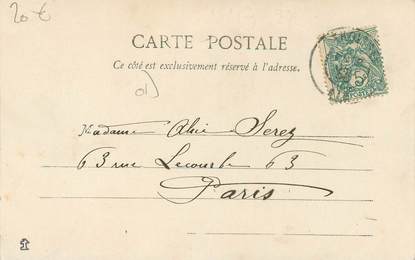 20 €
CARTE POSTALE
Ce côté est exclusivement réservé à l'adresse.
01)
Madame Alice Serez
63 rue Lecourbe 63
Paris